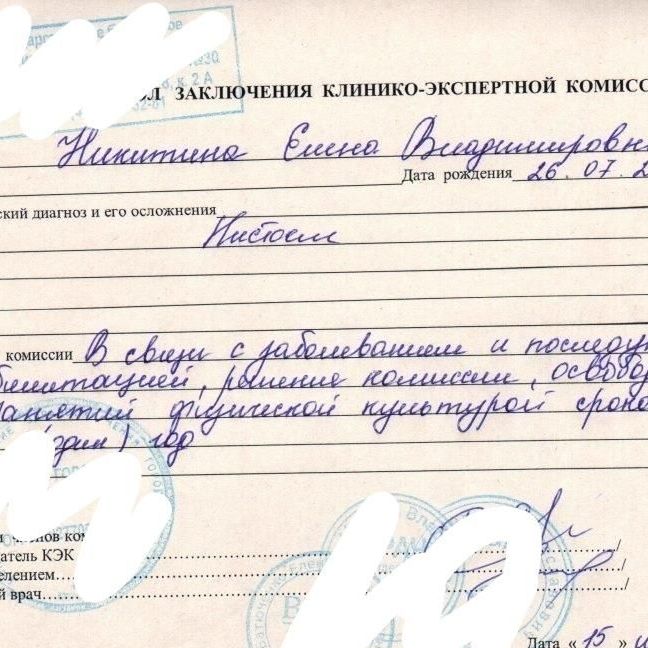 №30
к. 2 А
52-81
ОЛ ЗАКЛЮЧЕНИЯ КЛИНИКО-ЭКСПЕРТНОЙ КОМИСС
Никитина Елена Владимировн
Дата рождения 26.07.2
ский диагноз и его осложнения
комиссии В связи с заболеванием и последую
билитацией, решение комиссии, освобод
занятий физической культурой сроко
(один) год
и членов ком
атель КЭК
елением
й врач
Дата «15» и